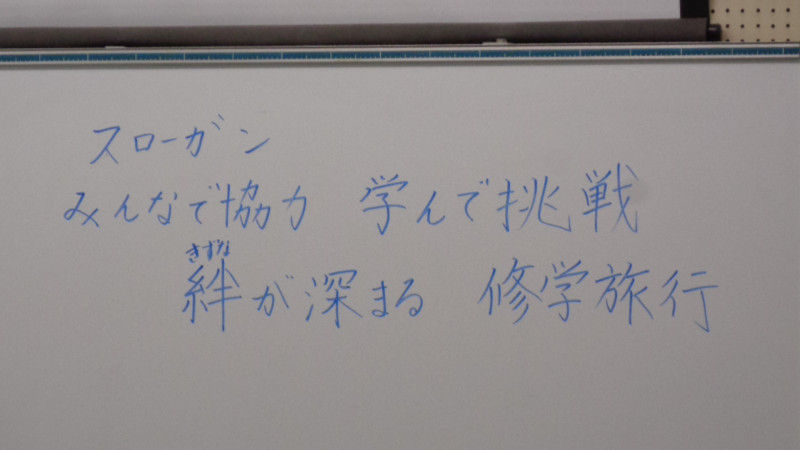 スローガン
みんなで協力 学んで挑戦
きずな
絆が深まる 修学旅行